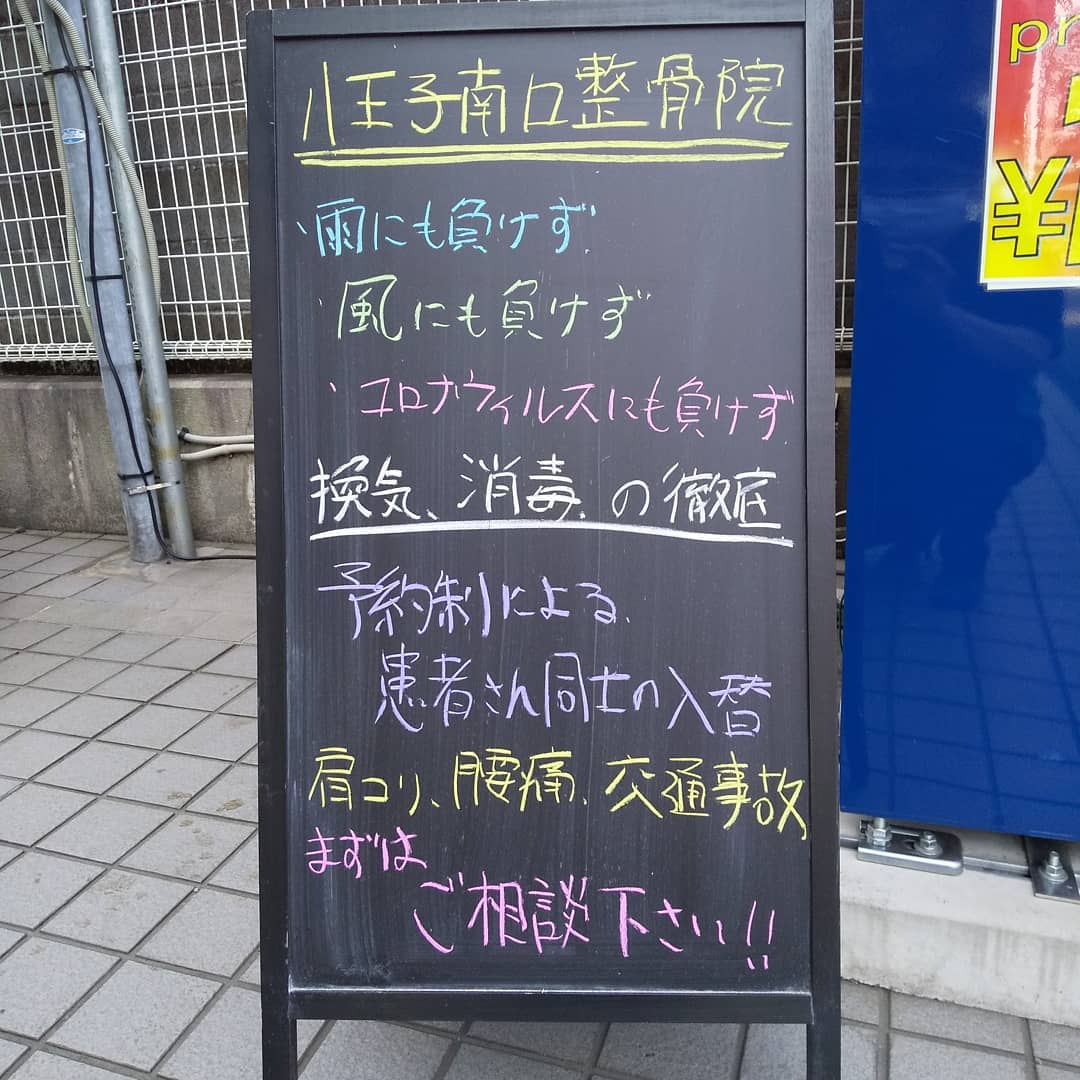 八王子南口整骨院
・雨にも負けず
・風にも負けず
・コロナウィルスにも負けず
換気、消毒、の徹底
予約制による、
患者さん同士の入替
肩コリ、腰痛、交通事故
まずは
ご相談下さい!!
pr
¥